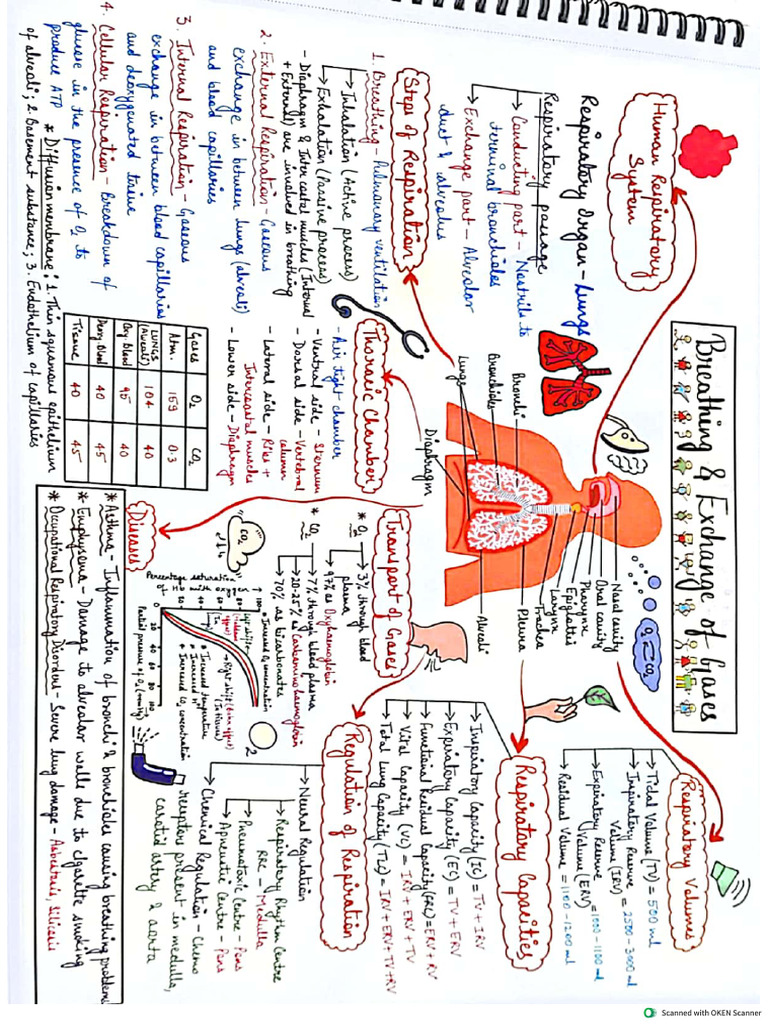 Breathing & Exchange of Gases
Human Respiratory
System
Respiratory Organ - Lungs
Respiratory passage
Conducting part - Nostrils to
terminal bronchioles
Exchange part - Alveolar
duct & alveolus
Steps of Respiration
1. Breathing - Pulmonary ventilation
Inhalation (Active process)
Exhalation (Passive process)
- Diaphragm & Inter costal muscles (Internal
+ External) are involved in breathing
2. External Respiration - Gaseous
exchange in between lungs (alveoli)
and blood capillaries
3. Internal Respiration - Gaseous
exchange in between blood capillaries
and deoxygenated tissue
4. Cellular Respiration - Breakdown of
glucose in the presence of O2 to
produce ATP
* Diffusion membrane: 1. Thin squamous epithelium
of alveoli; 2. Basement substance; 3. Endothelium of capillaries
Bronchi
Bronchioles
Lungs
Diaphragm
Nasal cavity
Oral cavity
Pharynx
Epiglottis
Larynx
Trachea
Pleura
Alveoli
O2 CO2
Thoracic Chamber
- Air tight chamber
- Ventral side - Sternum
- Dorsal side - Vertebral
column
- Lateral side - Ribs +
Intercostal muscles
- Lower side - Diaphragm
Gases O2 CO2
Atm. 159 0.3
LUNGS (Alveoli) 104 40
Oxy blood 95 40
Deoxy blood 40 45
Tissue 40 45
Transport of Gases
* O2
3% through blood
plasma
97% as Oxyhaemoglobin
* CO2
7% through blood plasma
20-25% as Carbaminohaemoglobin
70% as bicarbonates
CO2
Percentage saturation
of Hb with oxygen
100
0 20 40 60 80 100
Partial pressure of O2 (mmHg)
Increased O2 concentration
Right shift (Bohr effect)
(In tissues)
Increased temperature
Increased H+
Increased CO2 concentration
O2
Respiratory Volumes
Tidal Volume (TV) = 500 ml
Inspiratory Reserve
Volume (IRV) = 2500 - 3000 ml
Expiratory Reserve
Volume (ERV) = 1000 - 1100 ml
Residual Volume = 1100 - 1200 ml
Respiratory Capacities
Inspiratory Capacity (IC) = TV + IRV
Expiratory Capacity (EC) = TV + ERV
Functional Residual Capacity (FRC) = ERV + RV
Vital Capacity (VC) = IRV + ERV + TV
Total Lung Capacity (TLC) = IRV + ERV + TV + RV
Regulation of Respiration
Neural Regulation
Respiratory Rhythm Centre
RRC - Medulla
Pneumotaxic Centre - Pons
Apneustic Centre - Pons
Chemical Regulation - Chemo
receptors present in medulla,
carotid artery & aorta
Diseases
* Asthma - Inflammation of bronchi & bronchioles causing breathing problems
* Emphysema - Damage to alveolar walls due to cigarette smoking
* Occupational Respiratory Disorders - Severe lung damage - Asbestosis, Silicosis
Scanned with OKEN Scanner